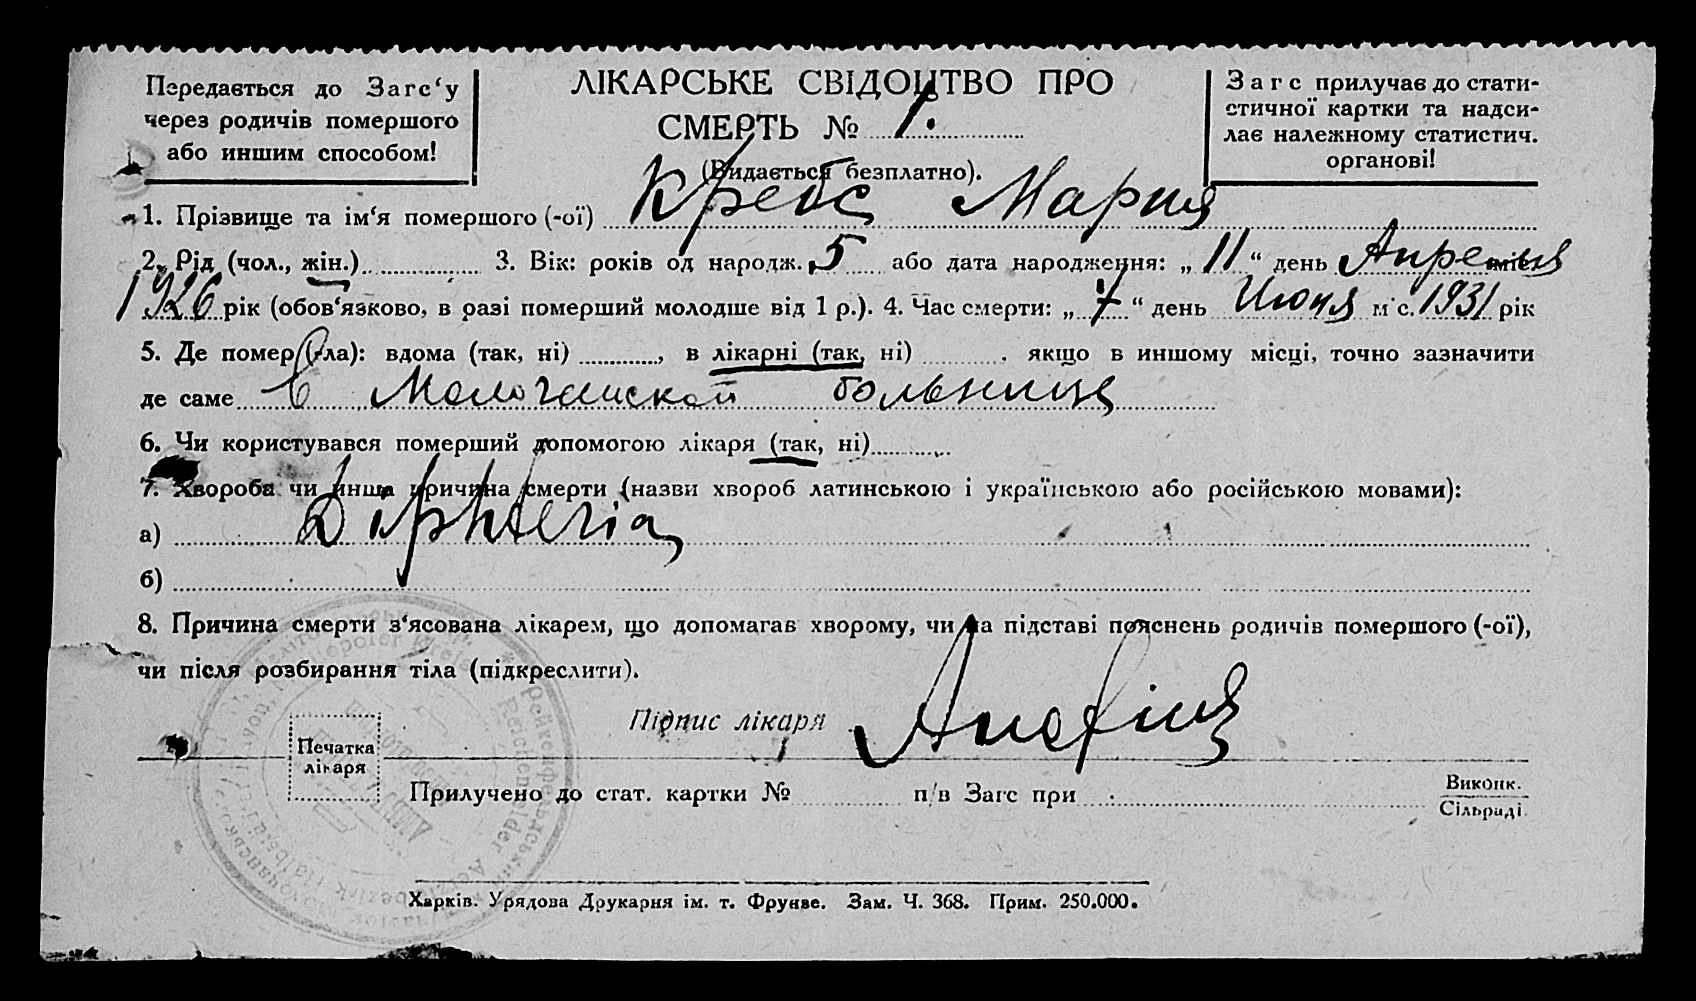 Передається до Загс‘у
через родичів помершого
або иншим способом!
ЛІКАРСЬКЕ СВІДОЦТВО ПРО
СМЕРТЬ № 1.
(Видається безплатно).
Загс прилучає до стати-
стичної картки та надси-
лає належному статистич.
органові!
1. Прізвище та ім‘я помершого (-ої) Кребс Мария
2. Рід (чол., жін.) 3. Вік: років од народж. 5 або дата народження: „11“ день Апреля міс.
1926 рік (обов‘язково, в разі померший молодше від 1 р.). 4. Час смерти: „7“ день Июня м с. 1931 рік
5. Де помер (-ла): вдома (так, ні) , в лікарні (так, ні) . якщо в иншому місці, точно зазначити
де саме в Молочанской больнице
6. Чи користувався померший допомогою лікаря (так, ні)
7. Хвороба чи инша причина смерти (назви хвороб латинською і українською або російською мовами):
а) Diphteria
б)
8. Причина смерти з‘ясована лікарем, що допомагав хворому, чи на підставі пояснень родичів помершого (-ої),
чи після розбирання тіла (підкреслити).
Підпис лікаря
Печатка
лікаря
Прилучено до стат. картки № п/в Загс при Виконк.
Сільраді
Харків. Урядова Друкарня ім. т. Фрунзе. Зам. Ч. 368. Прим. 250.000.